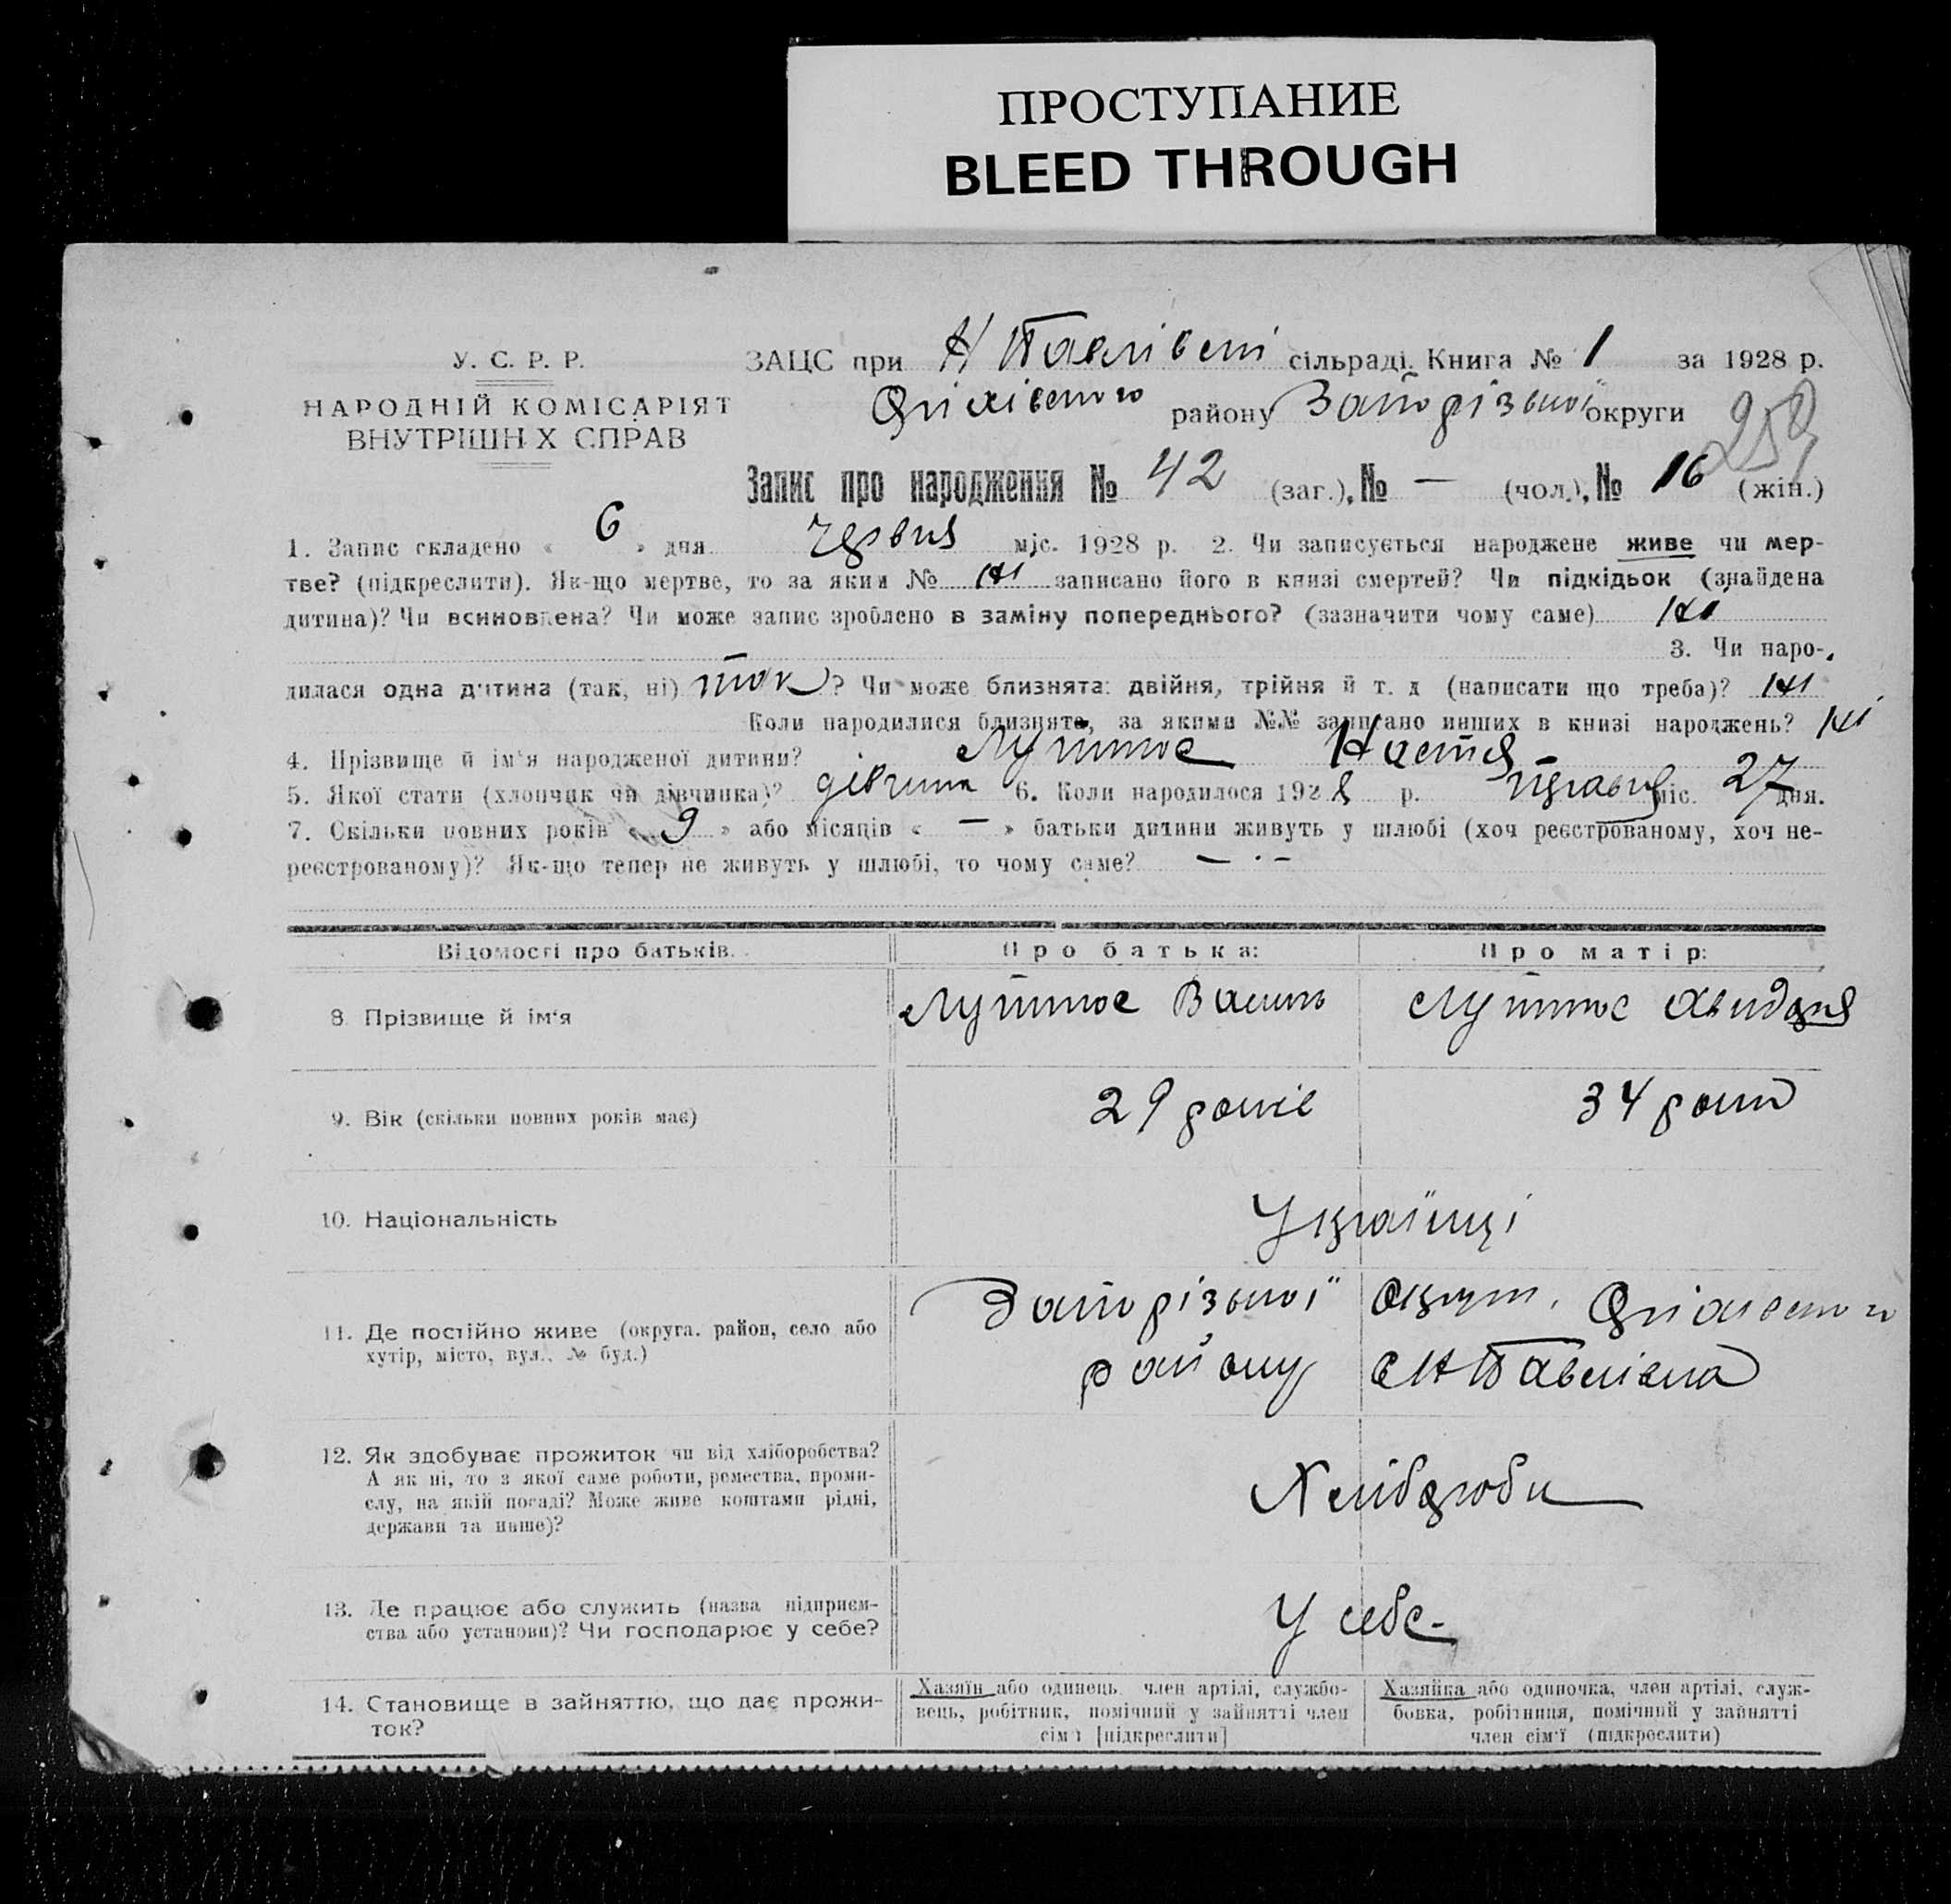 ПРОСТУПАНИЕ
BLEED THROUGH
У. С. Р. Р.
НАРОДНІЙ КОМІСАРІЯТ
ВНУТРІШН Х СПРАВ
ЗАЦС при Н Павлівскі сільраді. Книга № 1 за 1928 р.
району Запорізької округи
Запис про народження № 42 (заг.), № — (чол.), № 16 (жін.)
1. Запис складено « 6 » дня червня міс. 1928 р. 2. Чи записується народжене живе чи мер-
тве? (підкреслити). Як-що мертве, то за яким № ні записано його в книзі смертей? Чи підкідьок (знайдена
дитина)? Чи всиновлена? Чи може запис зроблено в заміну попереднього? (зазначити чому саме) ні
3. Чи наро-
дилася одна дитина (так, ні) так? Чи може близнята: двійня, трійня й т. д (написати що треба)? ні
Коли народилися близнята, за якими №№ записано инших в книзі народжень? ні
4. Прізвище й ім'я народженої дитини? Настя
5. Якої стати (хлопчик чи дівчинка)? дівчина 6. Коли народилося 1928 р. травня міс. 27 дня.
7. Скільки повних років « 9 » або місяців « — » батьки дитини живуть у шлюбі (хоч реєстрованому, хоч не-
реєстрованому)? Як-що тепер не живуть у шлюбі, то чому саме? — · —
Відомості про батьків.
Про батька:
Про матір:
8. Прізвище й ім'я
9. Вік (скільки повних років має)
29 років
34 роки
10. Національність
Українці
11. Де постійно живе (округа. район, село або
хутір, місто, вул., № буд.)
Запорізької округи,
району с Н Павлівка
12. Як здобуває прожиток чи від хліборобства?
А як ні, то з якої саме роботи, ремества, проми-
слу, на якій посаді? Може живе коштами рідні,
держави та инше)?
Хлібороби
13. Де працює або служить (назва підприєм-
ства або установи)? Чи господарює у себе?
У себе-
14. Становище в зайняттю, що дає прожи-
ток?
Хазяїн або одинець член артілі, службо-
вець, робітник, помічний у зайнятті член
сім'ї [підкреслити]
Хазяйка або одиночка, член артілі, служ-
бовка, робітниця, помічний у зайнятті
член сім'ї (підкреслити)